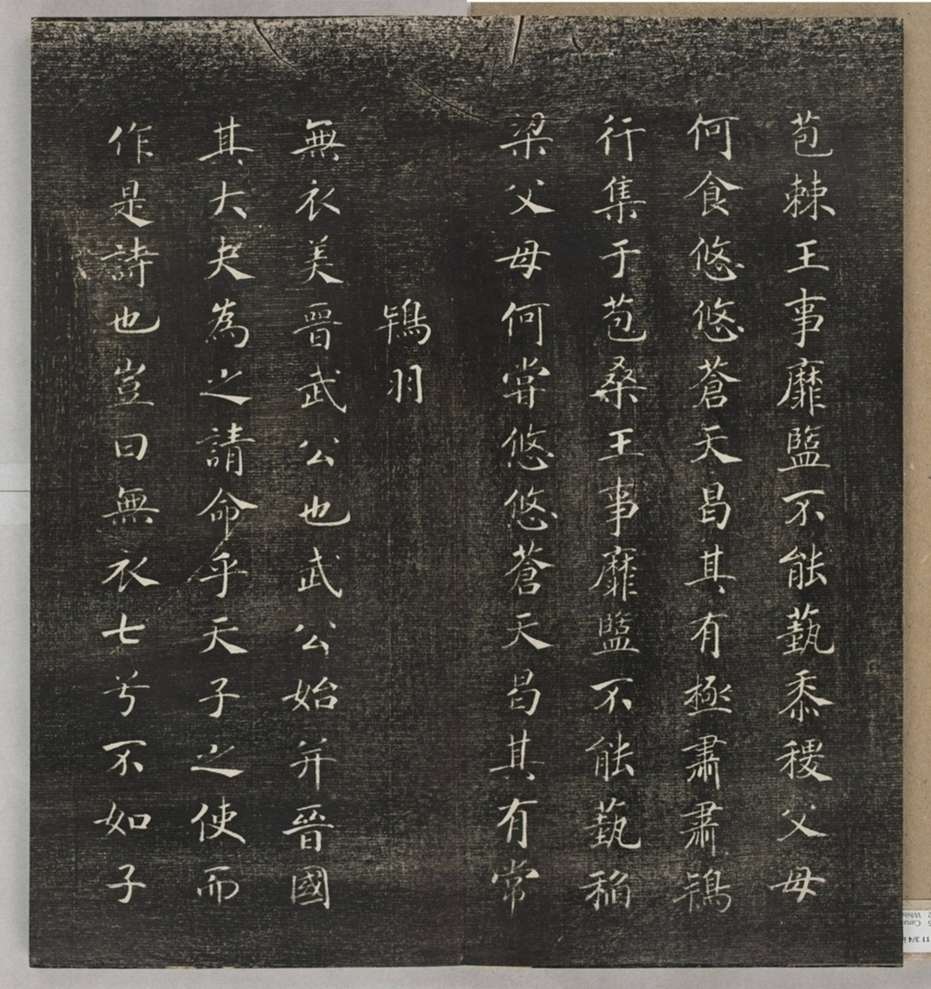 苞棘王事靡盬不能蓺黍稷父母
何食悠悠蒼天曷其有極肅肅鴇
行集于苞桑王事靡盬不能蓺稻
梁父母何甞悠悠蒼天曷其有常
鴇羽
無衣美晉武公也武公始并晉國
其大夫為之請命乎天子之使而
作是詩也豈曰無衣七兮不如子